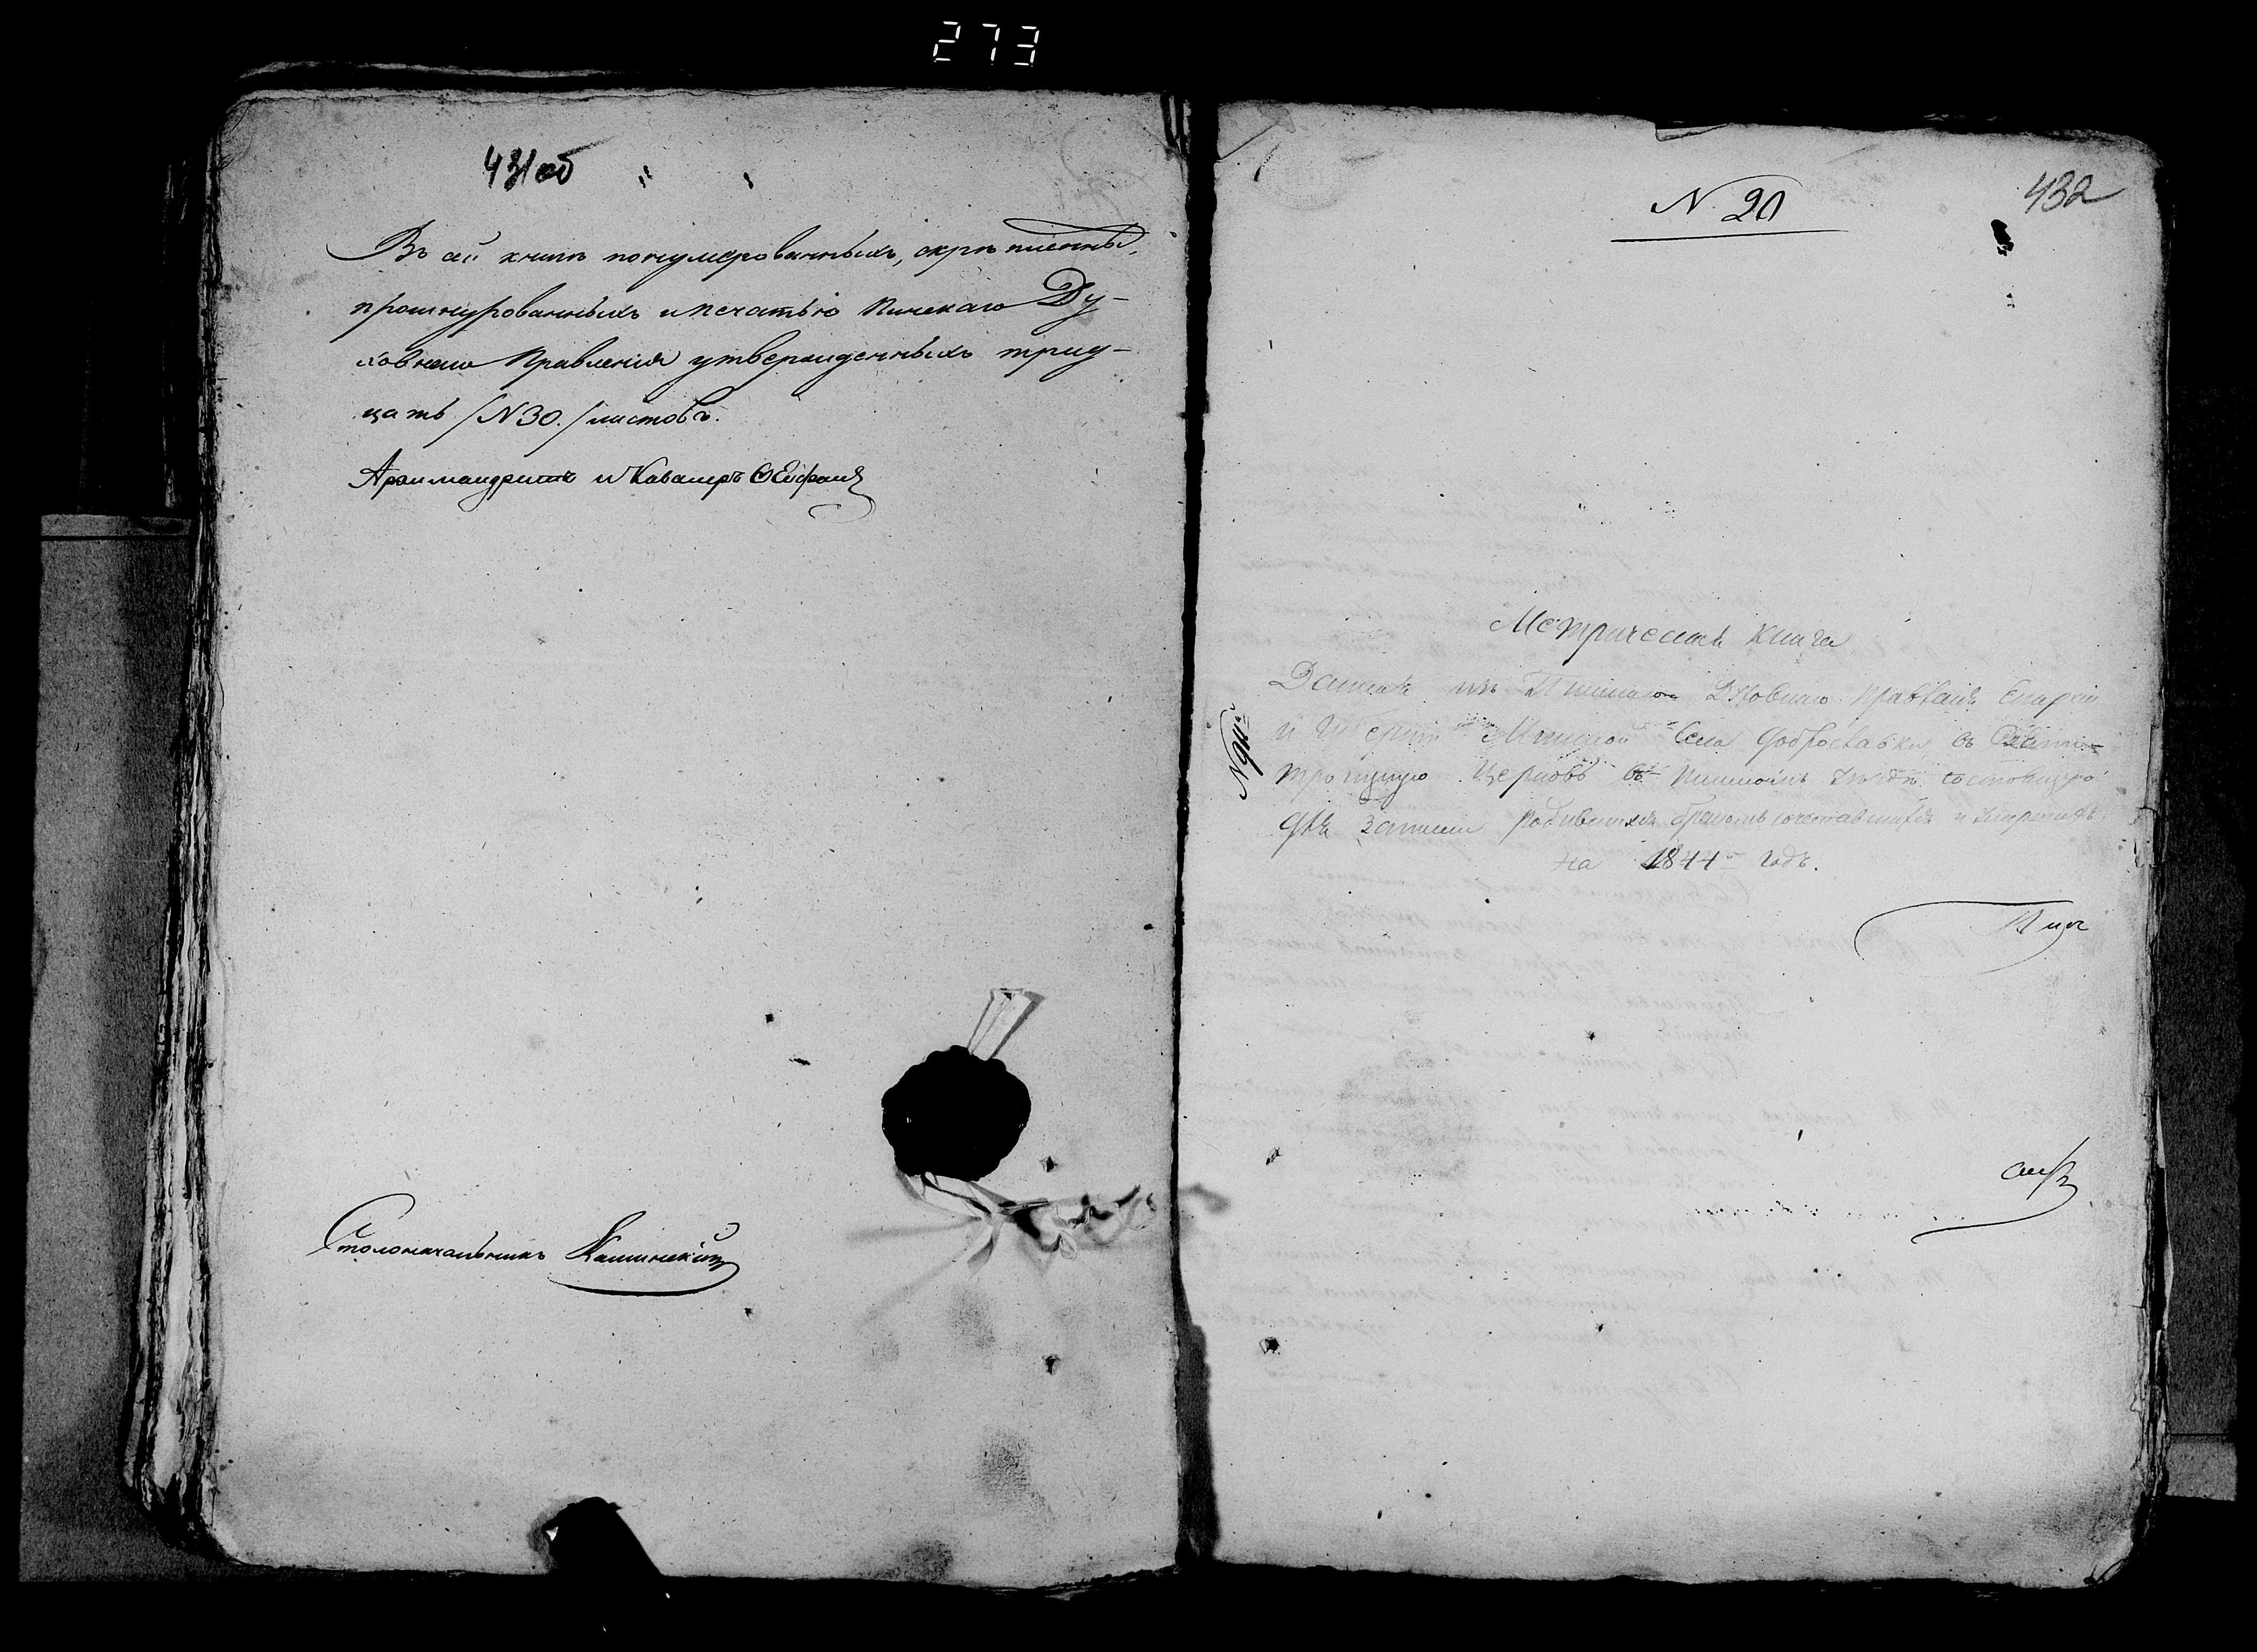 273
431об
Въ ай книгѣ понумерованныхъ, скрѣпленны,
прошнурованныхъ и печатью Пинскаго Ду-
ховнаго Правленія утвержденныхъ трид-
цать /N30./ листовъ.
Архимандритъ и Кавалеръ
Столоначальникъ
N 20
432
Метрическая книга
Данная изъ Пинскаго Духовнаго Правленія Епархіи
и Губерніи Минской Села Доброславки въ Свято
троицкую Церковь въ Пинскомъ Уѣздѣ состоящую
для записи родившихся бракомъ сочетавшихся и умершихъ
на 1844й годъ.